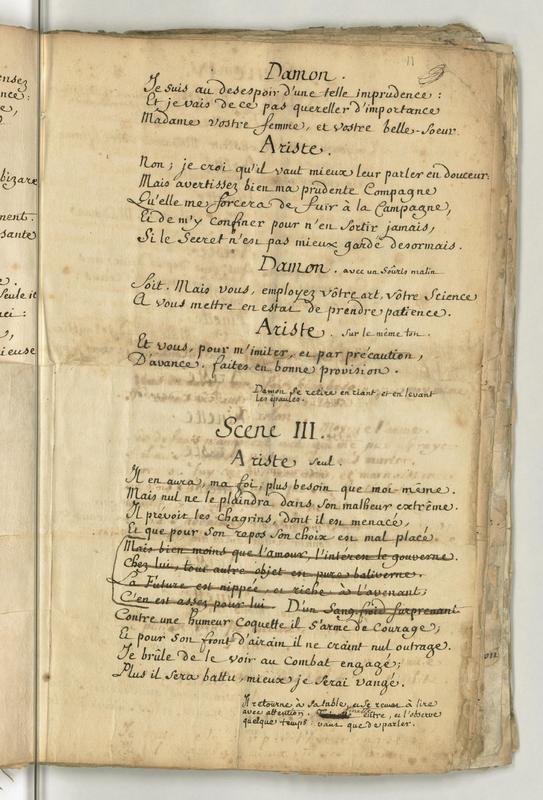 11
ensez
nce:
e,
bizare
nent.
sante
e.
seule it
nei:
,
ieuse
Damon.
Je suis au desespoir d'une telle imprudence :
Et je vais de ce pas quereller d'importance
Madame vostre femme, et vostre belle-soeur.
Ariste.
Non ; je croi qu'il vaut mieux leur parler en douceur.
Mais avertissez bien ma prudente Compagne
Qu'elle me forcera de fuir à la Campagne,
Et de m'y confiner pour n'en sortir jamais,
Si le Secret n'est pas mieux gardé desormais.
Damon. avec un Souris malin
Soit. Mais vous, employez vôtre art, vôtre Science
A vous mettre en estat de prendre patience.
Ariste. Sur le même ton.
Et vous, pour m'imiter, et par précaution,
D'avance, faites en bonne provision.
Damon se retire en riant, et en levant
les épaules.
Scene III.
Ariste seul.
Il en aura, ma foi, plus besoin que moi même.
Mais nul ne le plaindra dans Son malheur extrême.
Il prévoit les chagrins, dont il est menacé,
Et que pour Son repos Son choix est mal placé
Mais bien moins que l'amour, l'intérest le gouverne.
Chez lui, tout autre objet est pure baliverne.
La Future est nippée, et riche à l'avenant;
C'en est assez pour lui. D'un Sang froid surprenant
Contre une humeur Coquette il s'arme de Courage;
Et pour Son front d'airain il ne craint nul outrage.
Je brûle de le voir au Combat engagé;
Plus il Sera battu, mieux je Serai vangé.
Il retourne à sa table, et se remet à lire
avec attention. entre, et l'observe
quelque temps avant que de parler.